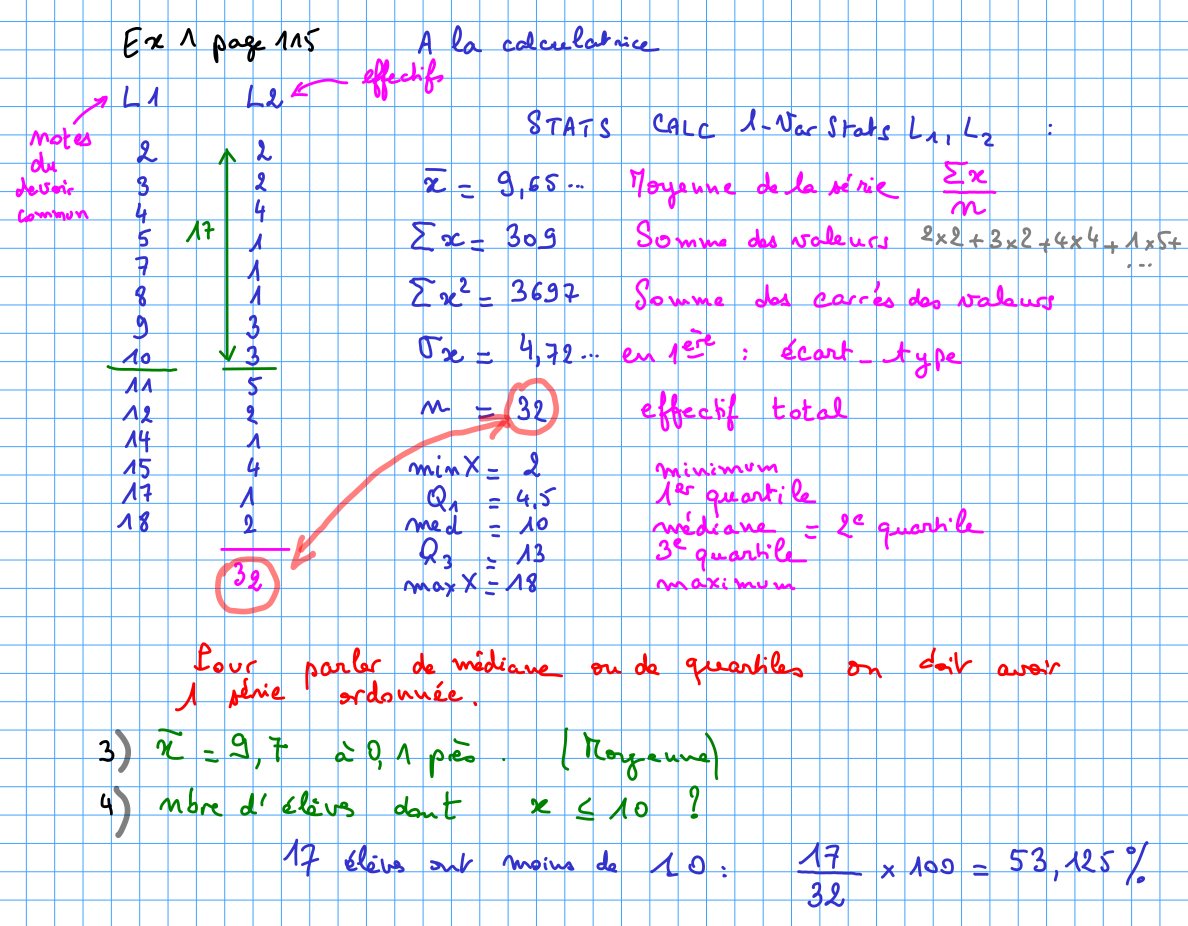 Ex 1 page 115 A la calculatrice
effectifs
L1 L2
notes
du
devoir
commun
STATS CALC 1-Var Stats L1, L2 :
2 2
3 2
4 4
5 1
7 1
8 1
9 3
10 3
11 5
12 2
14 1
15 4
17 1
18 2
17
32
x̄ = 9,65... Moyenne de la série Σx/n
Σx = 309 Somme des valeurs 2×2+3×2+4×4+1×5+
...
Σx² = 3697 Somme des carrés des valeurs
σx = 4,72... en 1ère : écart-type
n = 32 effectif total
minX = 2 minimum
Q1 = 4,5 1er quartile
med = 10 médiane = 2e quartile
Q3 = 13 3e quartile
maxX = 18 maximum
Pour parler de médiane ou de quartiles on doit avoir
1 série ordonnée.
3) x̄ = 9,7 à 0,1 près. (Moyenne)
4) nbre d'élèves dont x ≤ 10 ?
17 élèves ont moins de 10 : 17/32 × 100 = 53,125 %